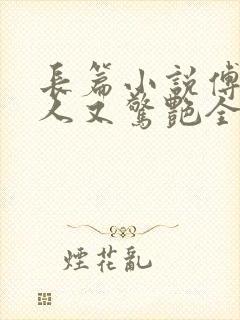 長篇小說傅
人又驚艷全
煙花亂